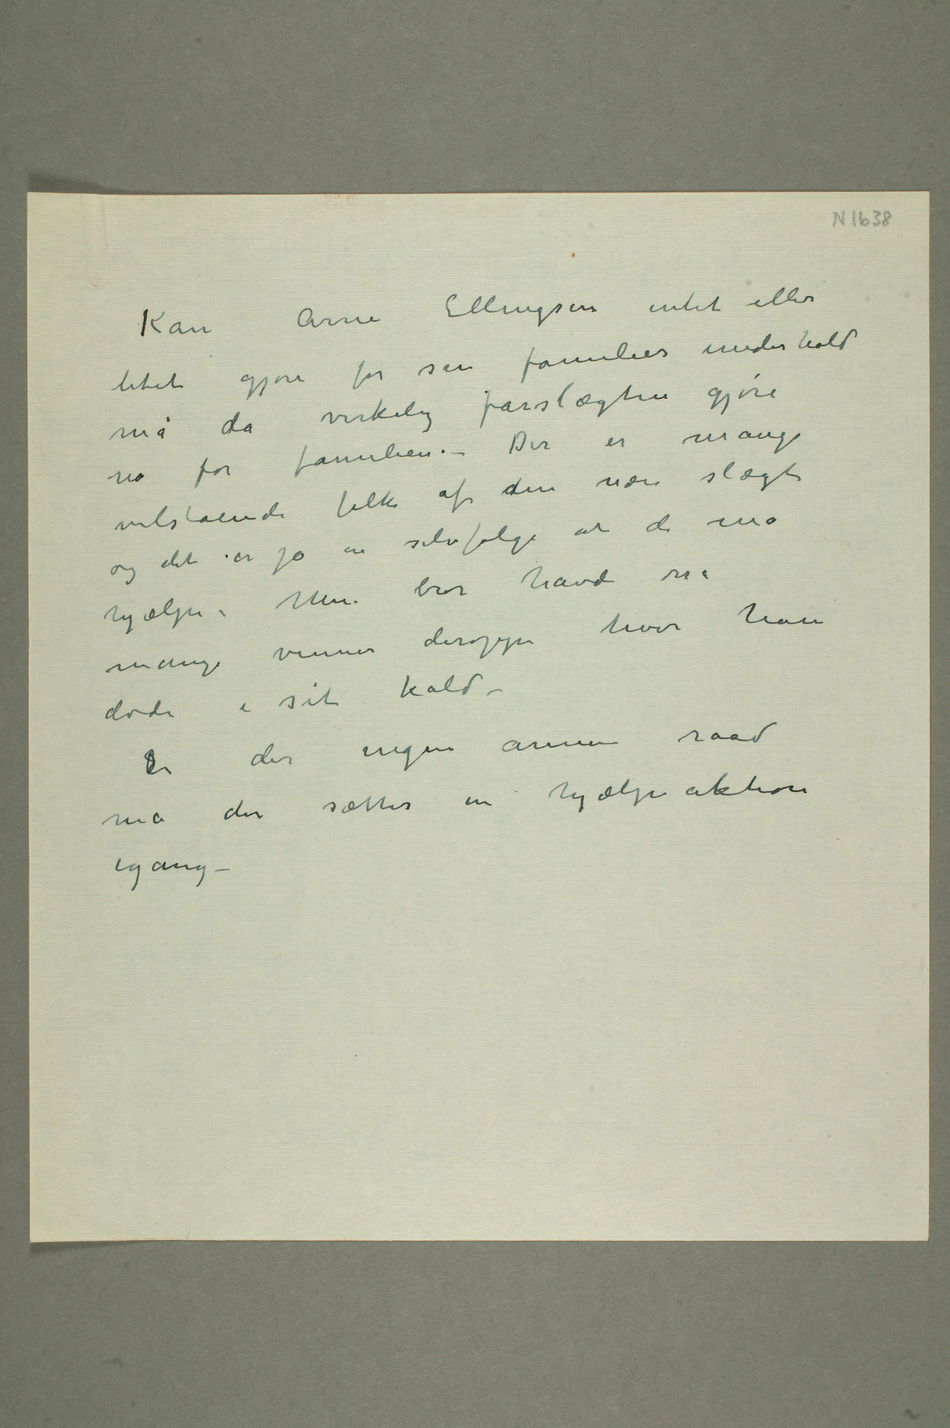 N 1638
Kan Arne Ellingsen intet eller
litet gjøre for sin families underhold
må da virkelig farslægten gjøre
no for familien. – Der er mange
velstående folk af den nære slægt
og det er jo en selvfølge at de må
hjælpe. Min bror havde så
mange venner deroppe hvor han
døde i sit kald –
Er der ingen annen raad
må der sættes en hjælpeaktion
igang –